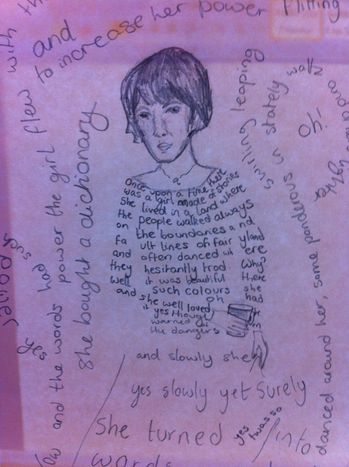 with th
and
to increase her power flitting
she bought a dictionary
and the words power the girl flew
swirling leaping
ponderous in stately waltz
danced around her, some
Oh!
Once upon a time there
was a girl made of stories
She lived in a land where
the people walked always
on the boundaries and
fa ult lines of fair yland
and often danced wh ere
they hesitantly trod Why?
Well it was beautiful there
such colours she
and she well loved had
it yes though
warned
the dangers
and slowly she
yes slowly yet surely
She turned
yes twas so
into
words